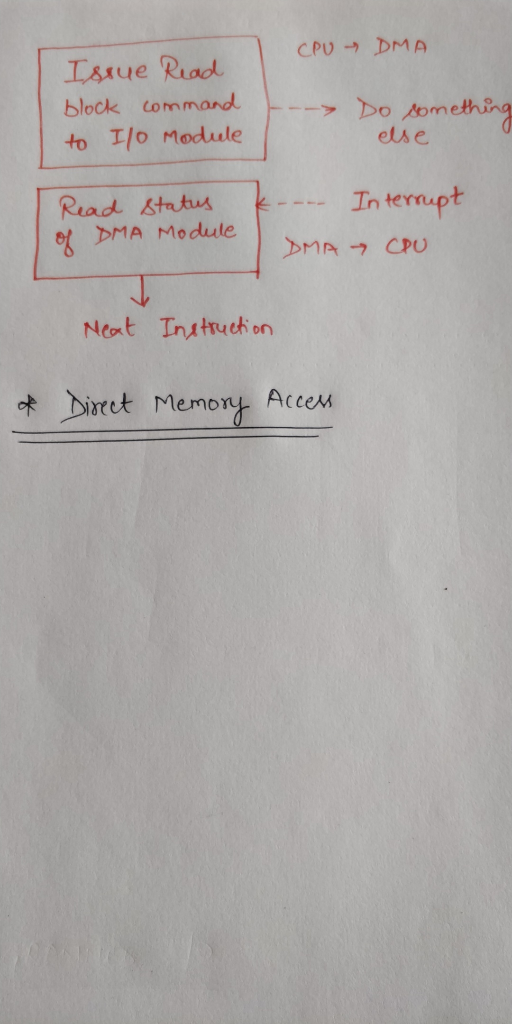 CPU → DMA
Issue Read
block command
to I/O Module
Do something
else
Read Status
of DMA Module
Interrupt
DMA → CPU
Next Instruction
* Direct Memory Access